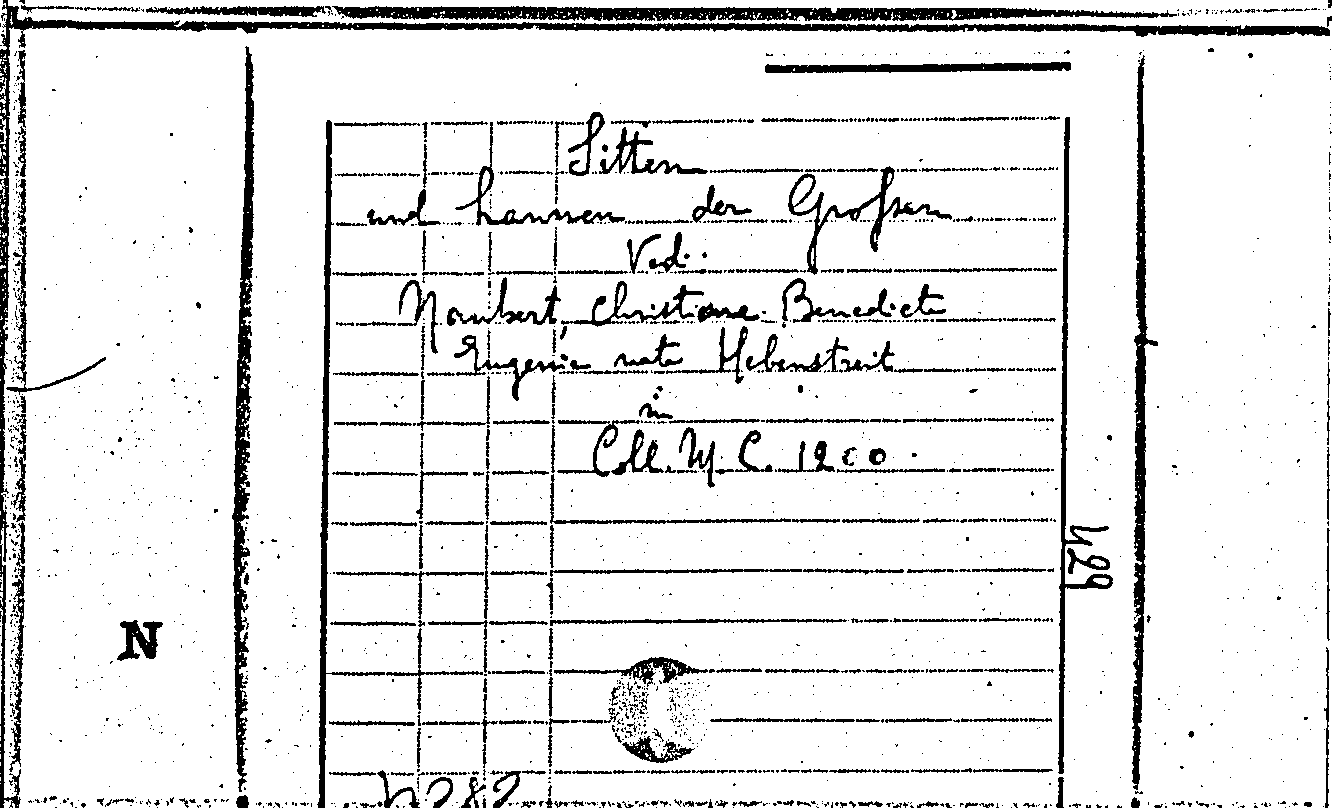 Sitten
und Launen der Großen
Ved..
Naubert, Christiane Benedicte
Eugenie nata Hebenstreit
in
Coll. M. C. 1200.
429
N
4282